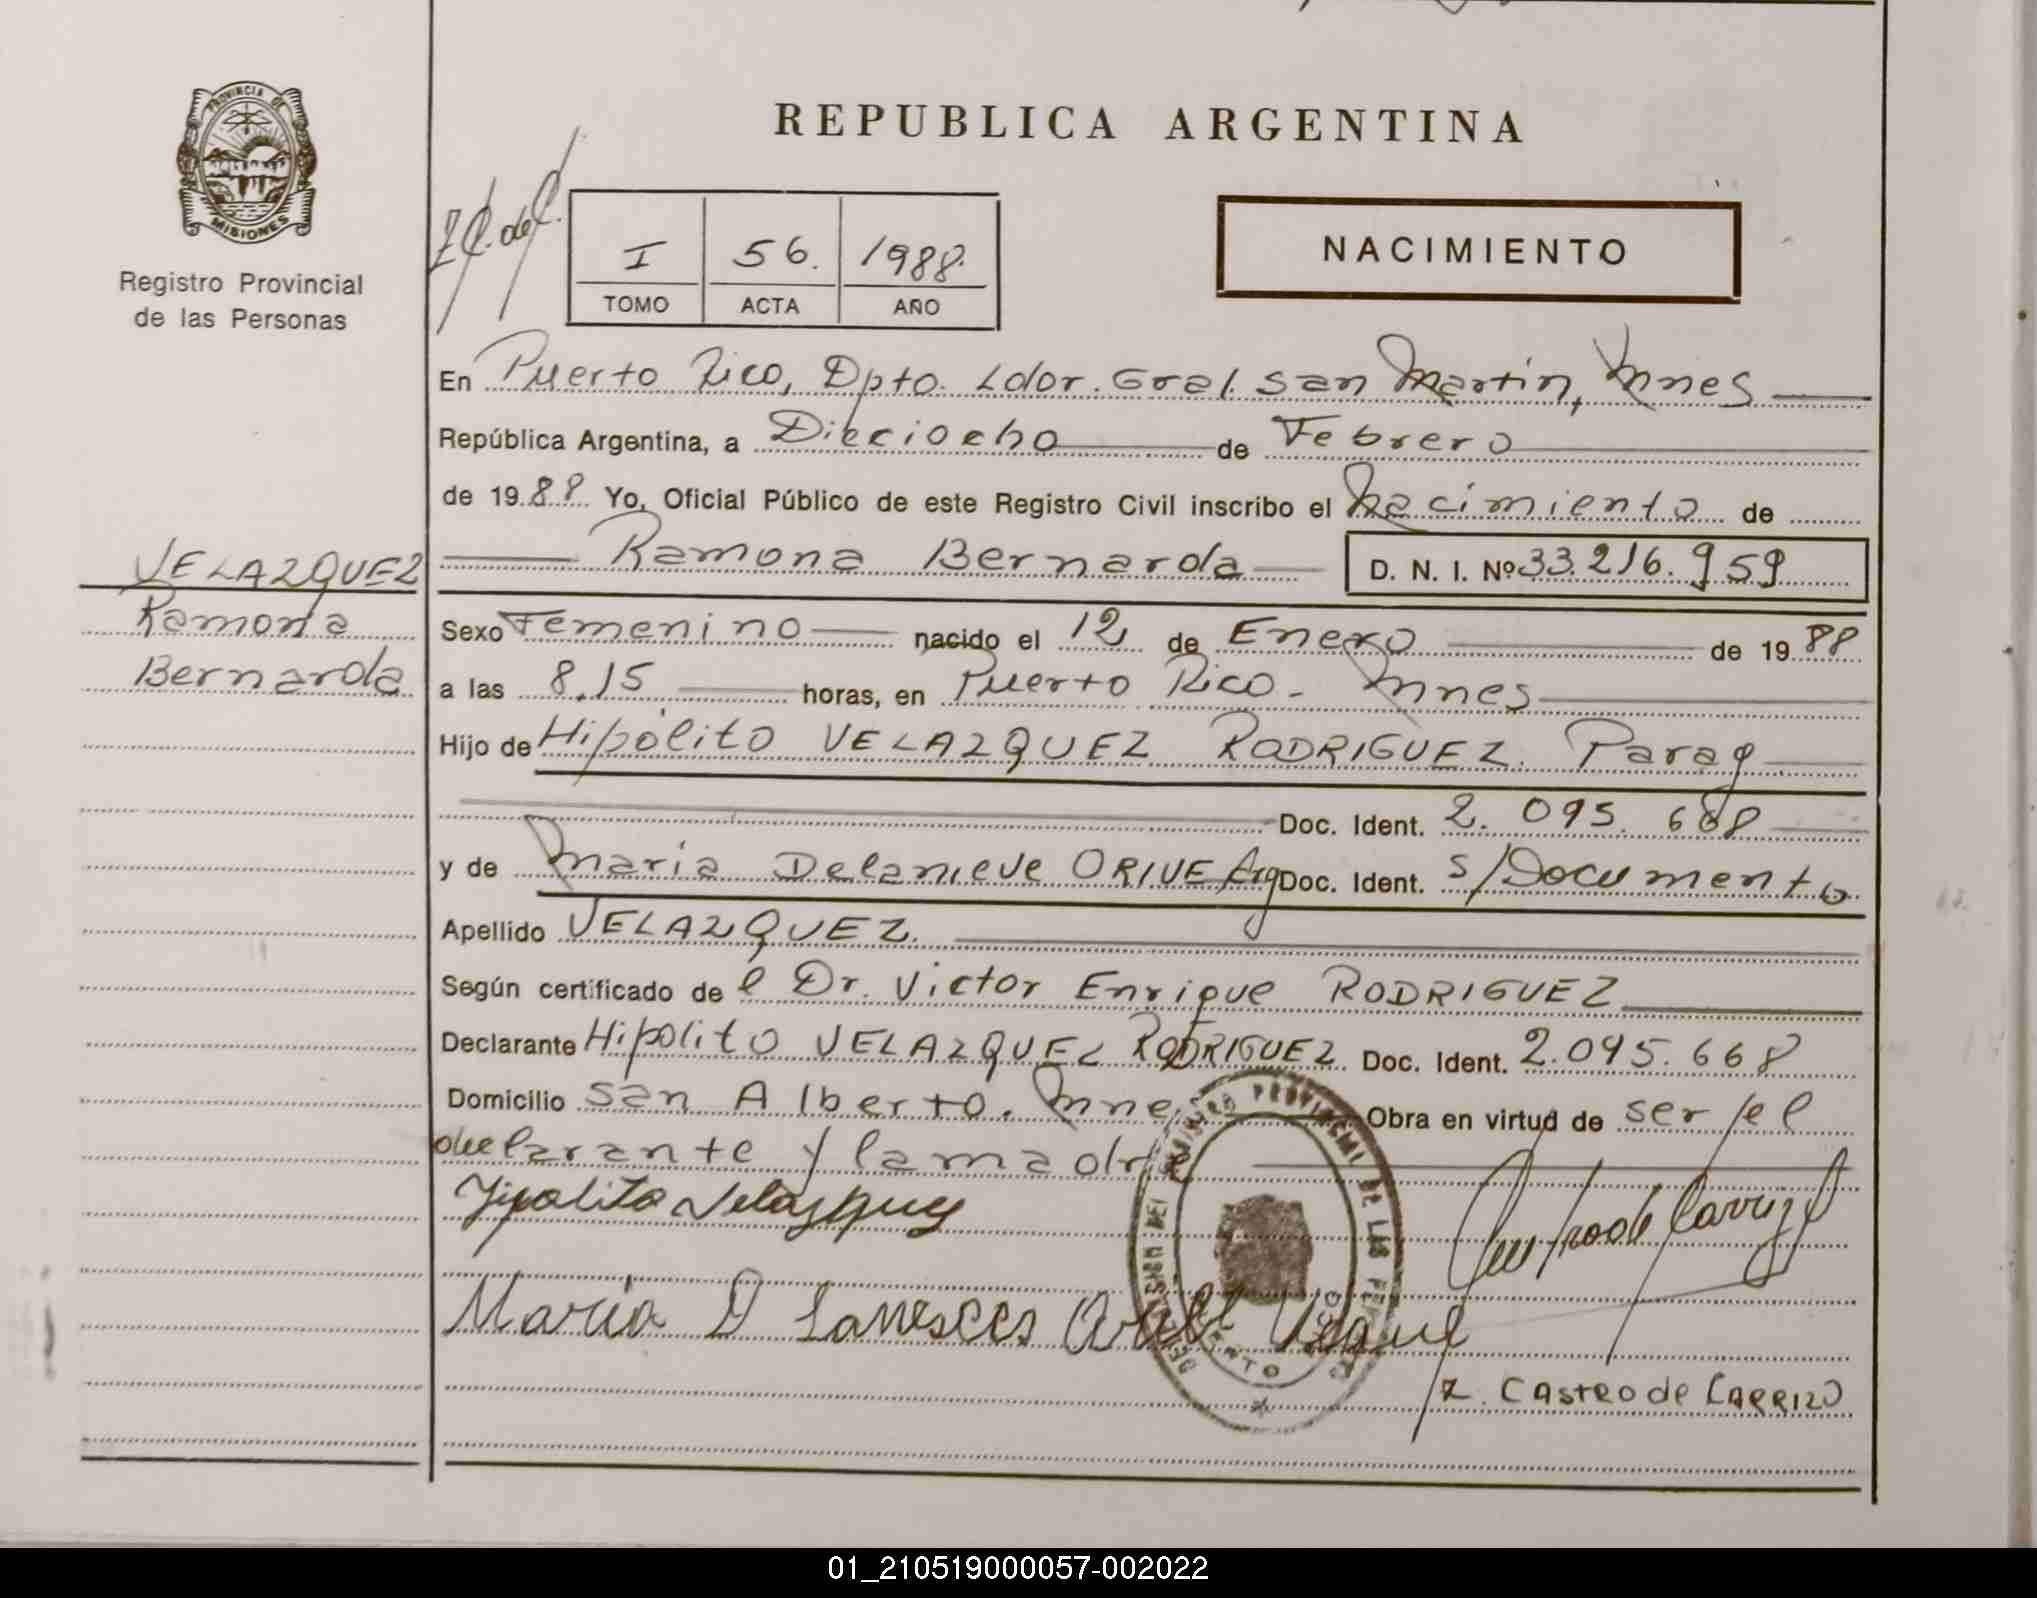 REPUBLICA ARGENTINA
PROVINCIA DE
MISIONES
Registro Provincial
de las Personas
I 56. 1988.
TOMO ACTA AÑO
NACIMIENTO
En Puerto Rico, Dpto. Ldor. Gral. San Martin, Mnes
República Argentina, a Dieciocho de Febrero
de 1988 Yo, Oficial Público de este Registro Civil inscribo el Nacimiento de
VELAZQUEZ
Ramona
Bernarda
Ramona Bernarda D. N. I. Nº 33.216.959
Sexo Femenino nacido el 12 de Enero de 1988
a las 8.15 horas, en Puerto Rico - Mnes
Hijo de Hipólito VELAZQUEZ RODRIGUEZ. Parag
Doc. Ident. 2.095.668
y de Maria Delanieve ORIVE Arg Doc. Ident. s/Documento
Apellido VELAZQUEZ.
Según certificado de l Dr. Victor Enrique RODRIGUEZ
Declarante Hipolito VELAZQUEZ RODRIGUEZ. Doc. Ident. 2.095.668
Domicilio San Alberto. Mnes Obra en virtud de ser el
declarante y la madre
Hipolito Velazquez
Maria D
Z. CASTRO de CARRIZO
01_210519000057-002022